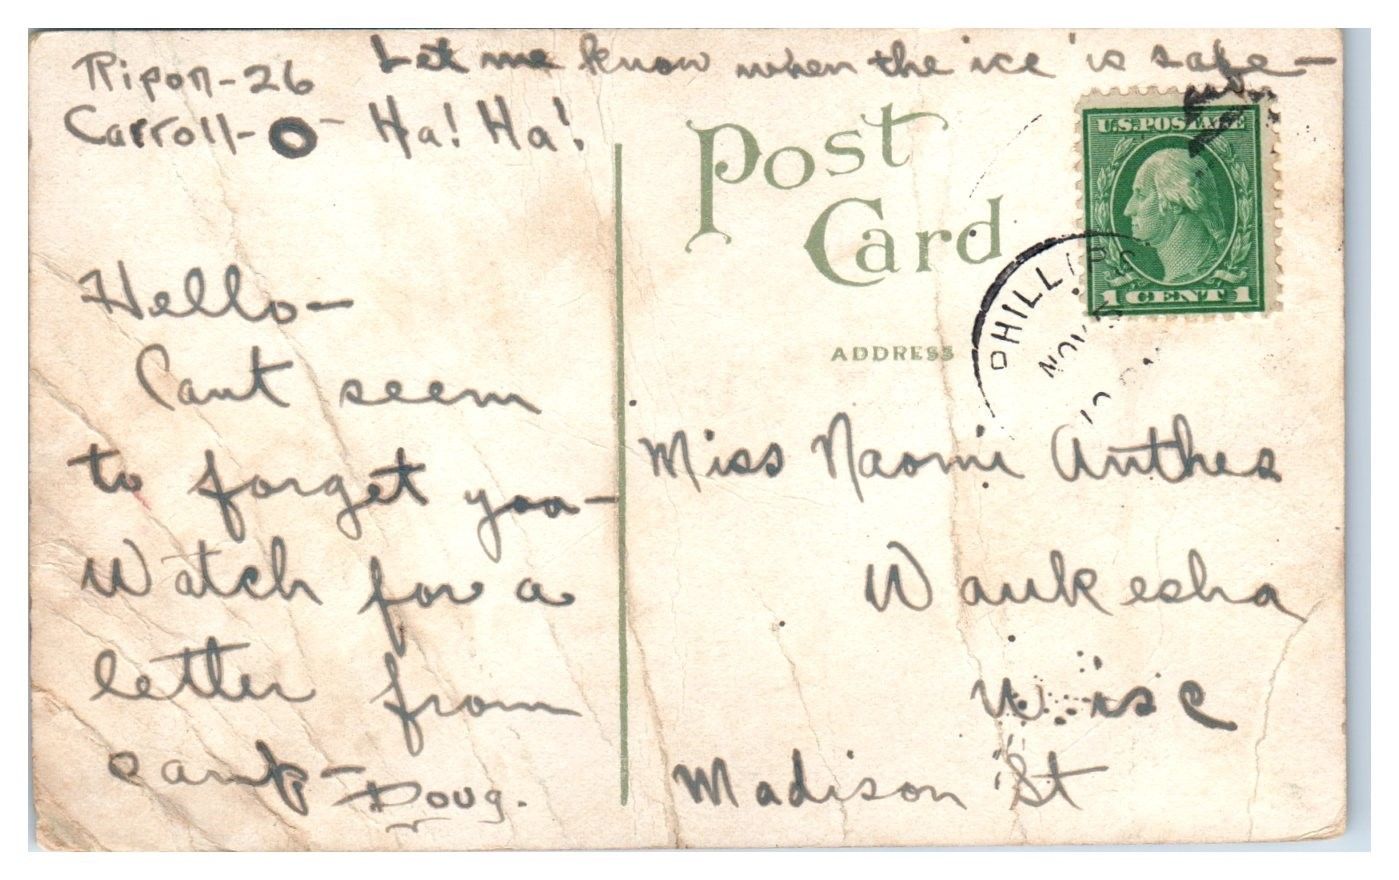 Ripon-26
Carroll-0-
Let me know when the ice is safe-
Ha! Ha!
Post
Card
ADDRESS
U.S.POSTAGE
1 CENT 1
PHILLIPS
NOV
Hello-
Cant seem
to forget you-
Watch for a
letter from
camp-
Doug.
Miss Naomi Anthes
Waukesha
Wisc
Madison St